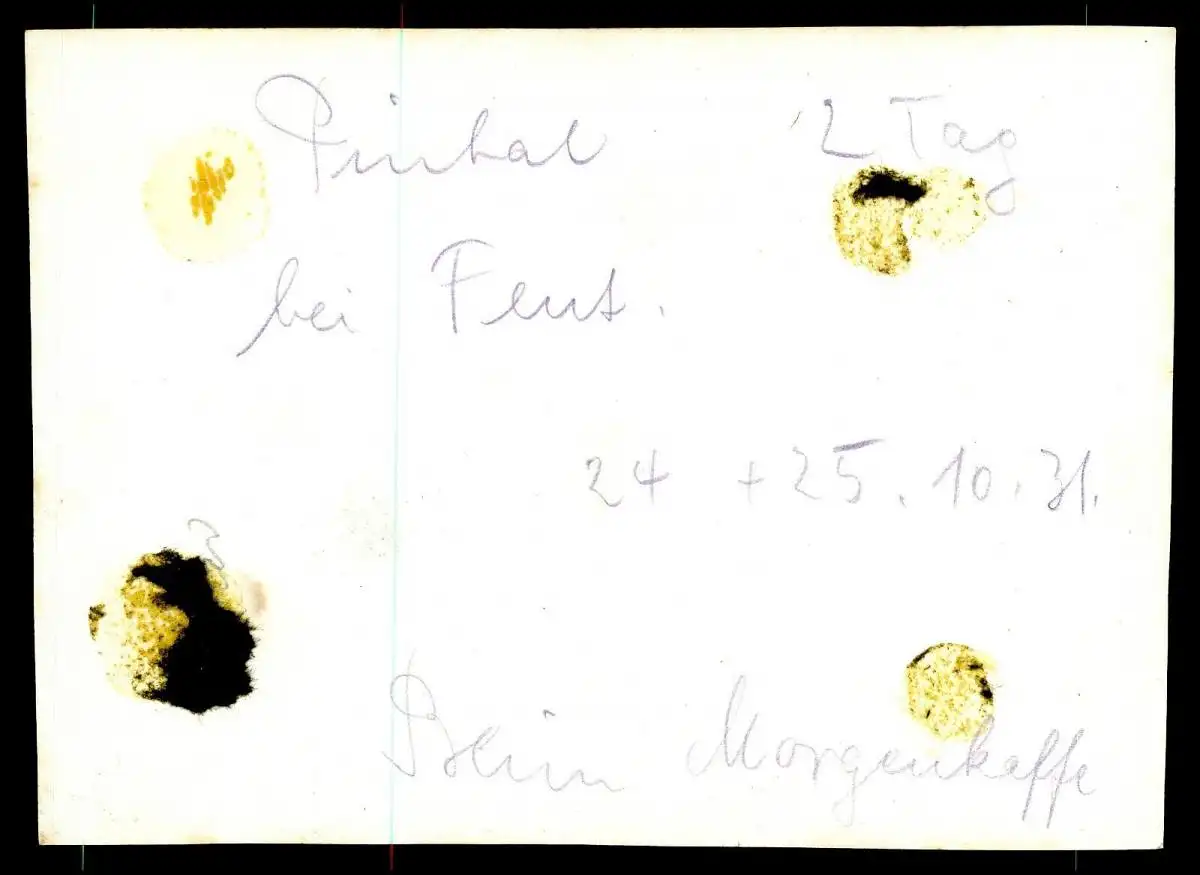 Pinhal 2 Tag
bei Fent.
24 + 25. 10. 31.
3
Beim Morgenkaffe